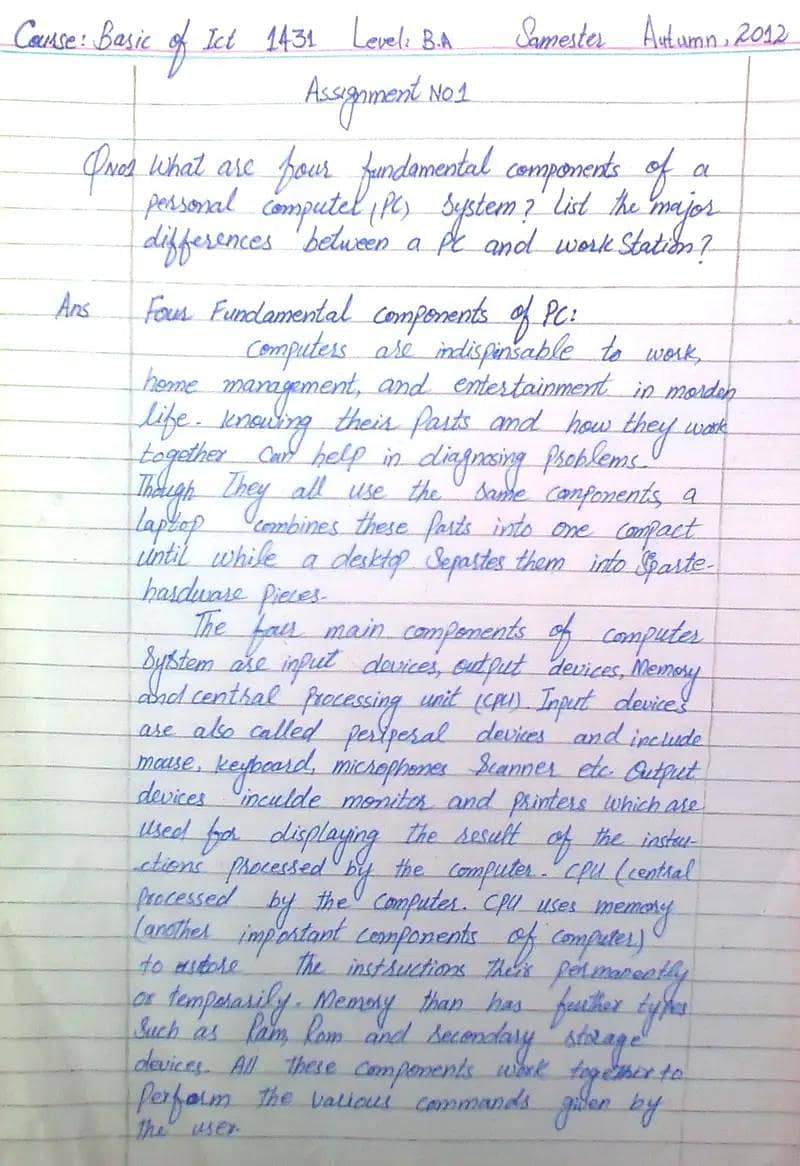 Course: Basic of Ict 1431 Level: B.A Samester Autumn, 2012
Assignment No1
QNo1 What are four fundamental components of a
personal computer (PC) System? List the major
differences between a PC and work Station?
Ans Four Fundamental components of PC:
Computers are indispinsable to work,
home management, and entertainment in morden
life. Knowing their Parts and how they work
together Can help in diagnosing Problems.
Though They all use the same components, a
laptop combines these Parts into one compact
until while a desktop Sepastes them into Sparte-
hardware Pieces.
The four main components of computer
System are input devices, output devices, Memory
and central Processing unit (CPU). Input devices
are also called periperal devices and include
mouse, keyboard, microphones Scanner etc. Output
devices inculde monitor and Printers which are
used for displaying the result of the instru-
ctions Processed by the computer. CPU (central
Processed by the Computer. CPU uses memory
(another important components of computer)
to restore the instructions their permanently
or temporarily. Memory than has further types
Such as Ram, Rom and Secondary storage
devices. All these components work together to
Perform the various commands given by
the user.